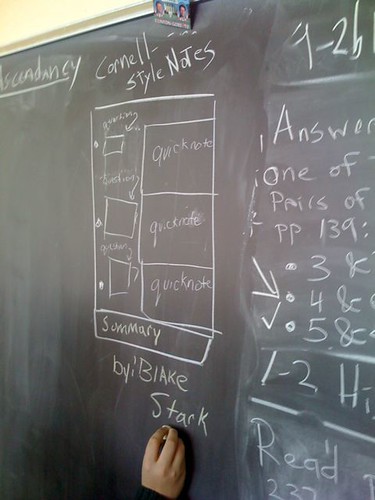 Ascendancy
Cornell-
style Notes
question
quicknote
question
quicknote
question
quicknote
Summary
by: BLAKE
Stark
1-2b
Answer
one of
Pairs of
pp 139:
• 3 &
• 4 &
• 5 &
1-2 Hi
Read